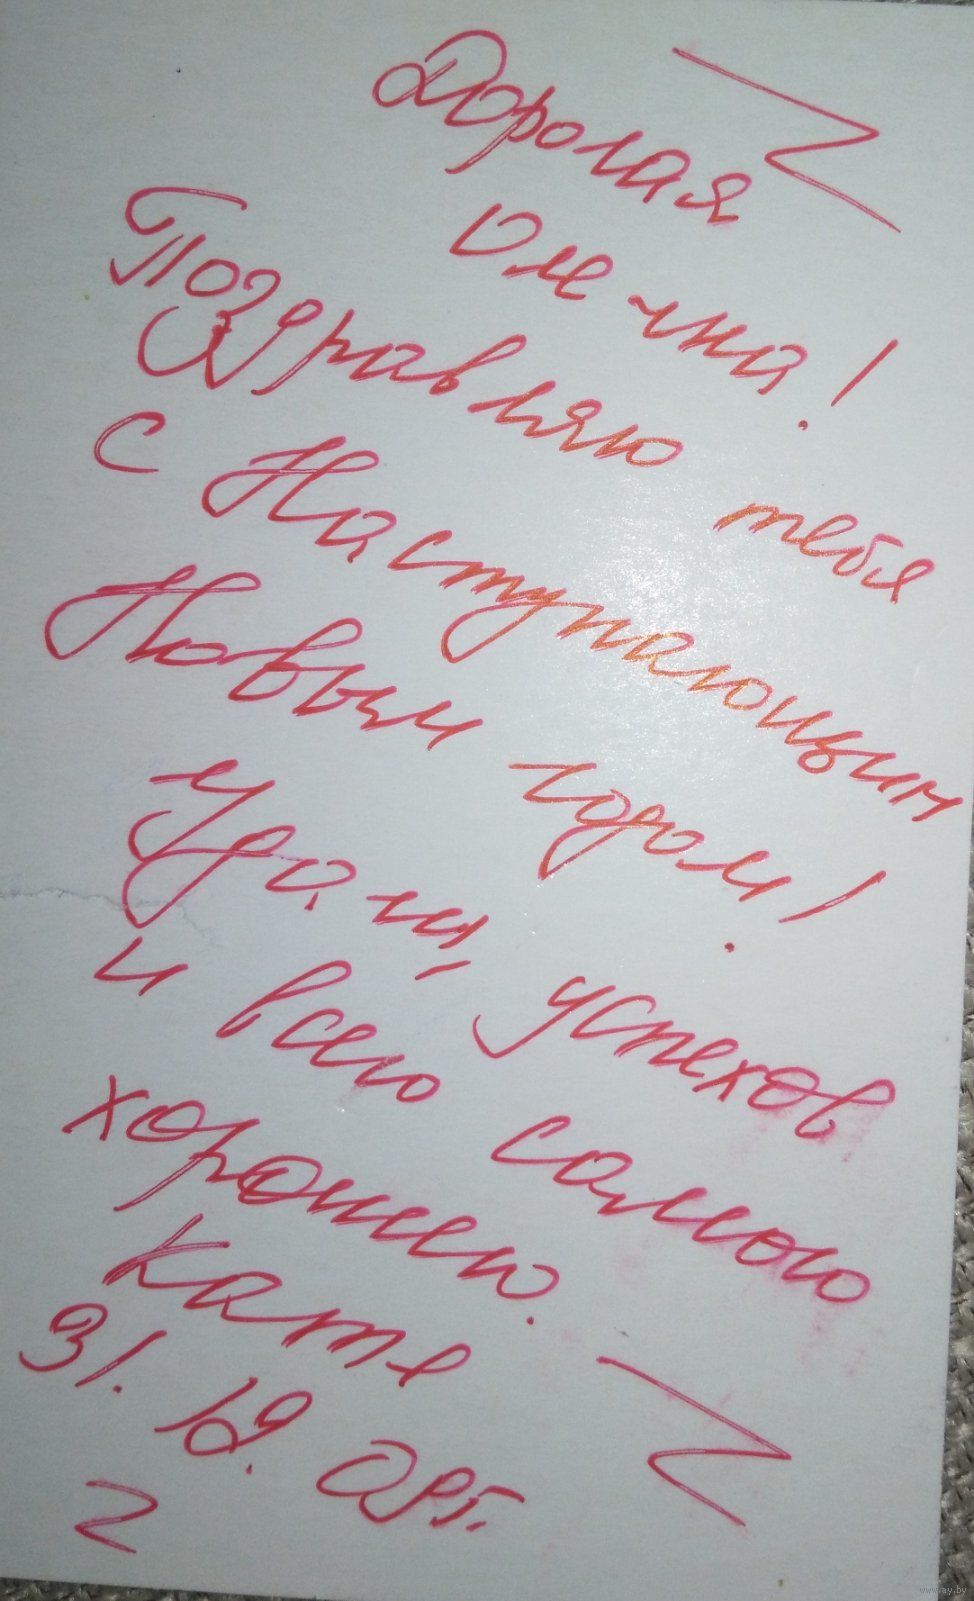 Дорогая
Олечка!
Поздравляю тебя
с Наступающим
Новым годом!
Удачи, успехов
и всего самого
хорошего.
Катя
31. 12. 09г.
www.ay.by